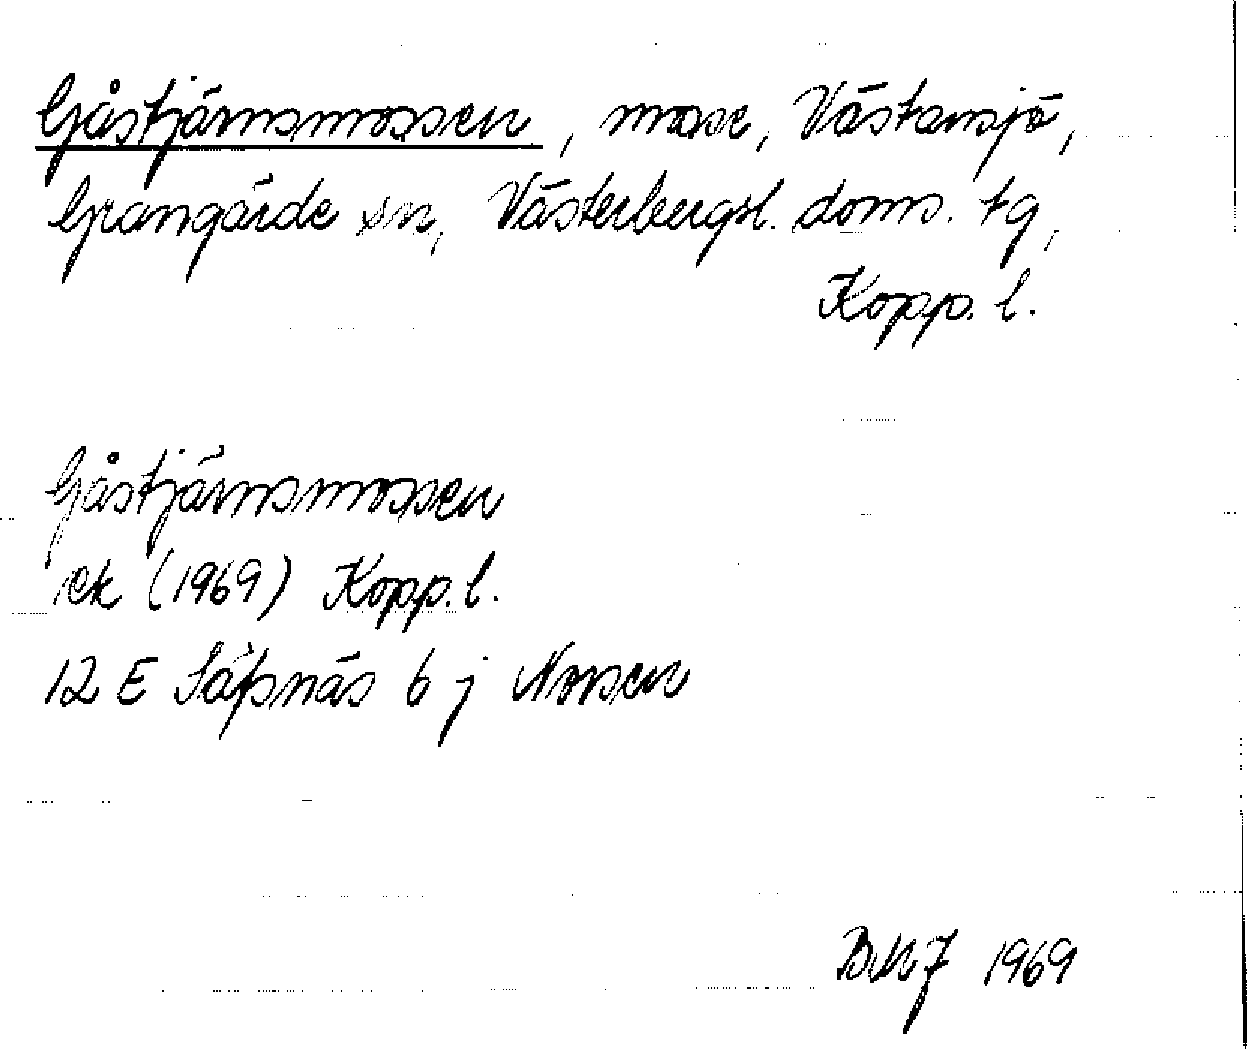 Gåstjärnsmossen, mosse, Västansjö,
Grangärde sn, Västerbergsl. doms. tg,
Kopp. l.
Gåstjärnsmossen
ek (1969) Kopp. l.
12 E Säfsnäs 6 j Norsen
1969